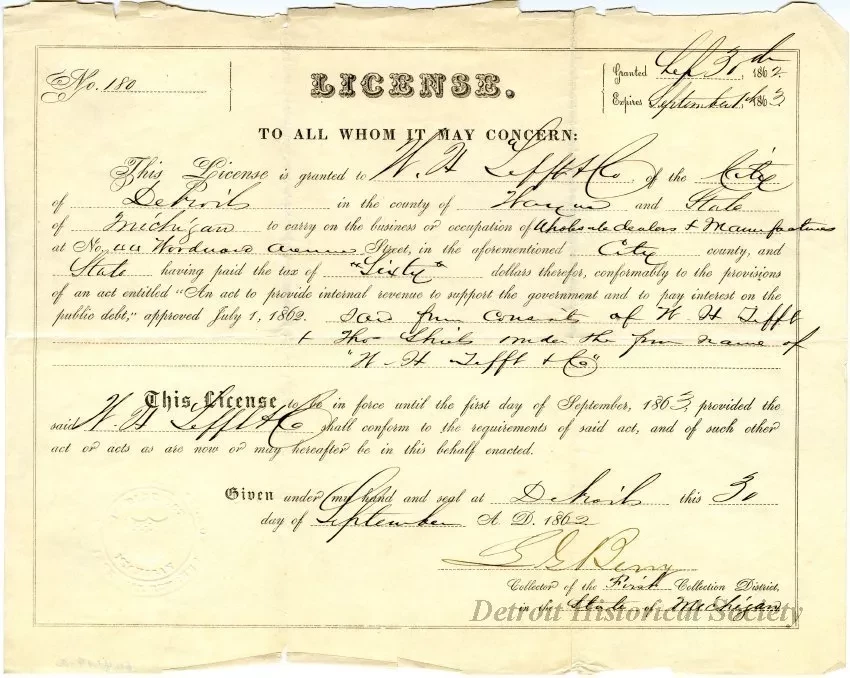 No. 180
LICENSE.
Granted Sep 30th, 1862
Expires September 1st 1863
TO ALL WHOM IT MAY CONCERN:
This License is granted to W. H. Tefft & Co of the City
of Detroit in the county of Wayne and State
of Michigan to carry on the business or occupation of Wholesale dealers & Manufactures
at No. Woodward avenue Street, in the aforementioned City county, and
State having paid the tax of "Sixty" dollars therefor, conformably to the provisions
of an act entitled "An act to provide internal revenue to support the government and to pay interest on the
public debt," approved July 1, 1862. Said firm consists of W. H. Tefft
& Thos Shiels under the firm name of
"W. H. Tefft & Co"
This License to be in force until the first day of September, 1863, provided the
said W. H. Tefft & Co shall conform to the requirements of said act, and of such other
act or acts as are now or may hereafter be in this behalf enacted.
Given under my hand and seal at Detroit this 30
day of September A. D. 1862
G G Berry
Collector of the First Collection District,
in the State of Michigan
Detroit Historical Society